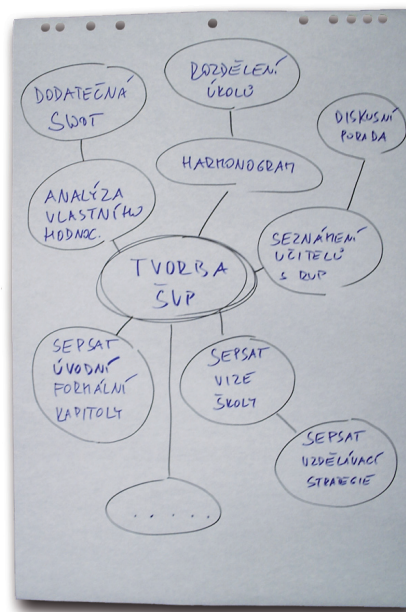 DODATEČNÁ
SWOT
ROZDĚLENÍ
ÚKOLŮ
DISKUSNÍ
PORADA
ANALÝZA
VLASTNÍHO
HODNOC.
HARMONOGRAM
SEZNÁMENÍ
UČITELŮ
S RVP
TVORBA
ŠVP
SEPSAT
ÚVODNÍ
FORMÁLNÍ
KAPITOLY
SEPSAT
VIZE
ŠKOLY
SEPSAT
VZDĚLÁVACÍ
STRATEGIE
.....